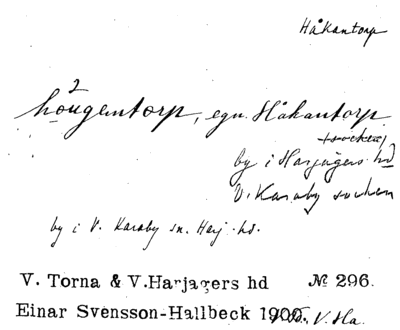 Håkantorp
2
hougentorp, egn. Håkantorp
socken
by i Harjagers hd
V. Karaby socken
by i V. Karaby sn. Harj. hd.
V. Torna & V.Harjagers hd № 296.
Einar Svensson-Hallbeck 1905. V. Ha.